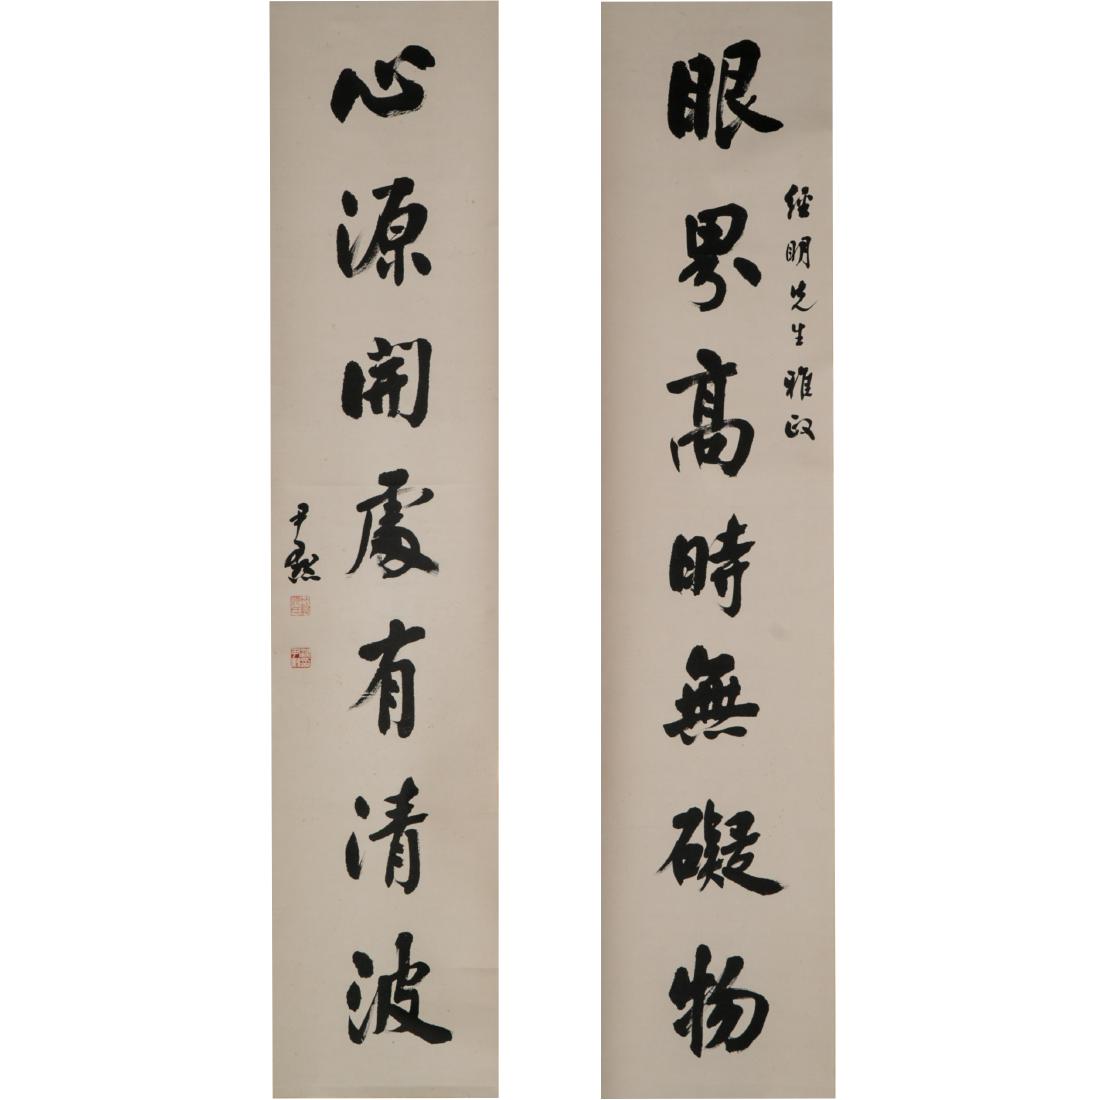 經明先生雅政
眼界高時無礙物
心源開處有清波
尹默